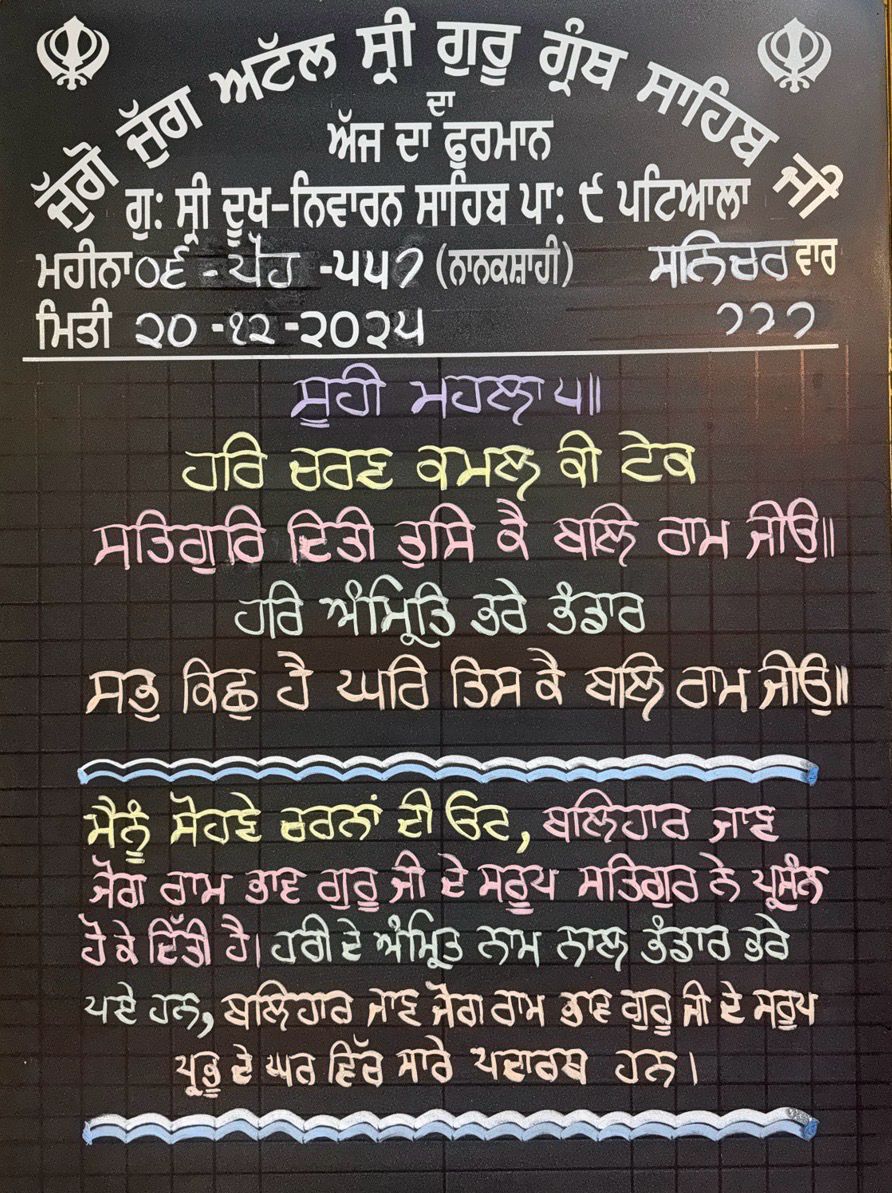 ਜੁੱਗੋ ਜੁੱਗ ਅਟੱਲ ਸ੍ਰੀ ਗੁਰੂ ਗ੍ਰੰਥ ਸਾਹਿਬ ਜੀ
ਦਾ
ਅੱਜ ਦਾ ਫੁਰਮਾਨ
ਗੁ: ਸ੍ਰੀ ਦੂਖ-ਨਿਵਾਰਨ ਸਾਹਿਬ ਪਾ: ੯ ਪਟਿਆਲਾ
ਮਹੀਨਾ ੦੬ - ਪੋਹ -੫੫੭ (ਨਾਨਕਸ਼ਾਹੀ) ਸਨਿਚਰ ਵਾਰ
ਮਿਤੀ ੨੦ -੧੨ -੨੦੨੫ ੭੭੭
ਸੂਹੀ ਮਹਲਾ ੫॥
ਹਰਿ ਚਰਣ ਕਮਲ ਕੀ ਟੇਕ
ਸਤਿਗੁਰਿ ਦਿਤੀ ਤੁਸਿ ਕੈ ਬਲਿ ਰਾਮ ਜੀਉ॥
ਹਰਿ ਅੰਮ੍ਰਿਤਿ ਭਰੇ ਭੰਡਾਰ
ਸਭੁ ਕਿਛੁ ਹੈ ਘਰਿ ਤਿਸ ਕੈ ਬਲਿ ਰਾਮ ਜੀਉ॥
ਮੈਨੂੰ ਸੋਹਣੇ ਚਰਨਾਂ ਦੀ ਓਟ, ਬਲਿਹਾਰ ਜਾਣ
ਜੋਗ ਰਾਮ ਭਾਵ ਗੁਰੂ ਜੀ ਦੇ ਸਰੂਪ ਸਤਿਗੁਰ ਨੇ ਪ੍ਰਸੰਨ
ਹੋ ਕੇ ਦਿੱਤੀ ਹੈ। ਹਰੀ ਦੇ ਅੰਮ੍ਰਿਤ ਨਾਮ ਨਾਲ ਭੰਡਾਰ ਭਰੇ
ਪਏ ਹਨ, ਬਲਿਹਾਰ ਜਾਣ ਜੋਗ ਰਾਮ ਭਾਵ ਗੁਰੂ ਜੀ ਦੇ ਸਰੂਪ
ਪ੍ਰਭੂ ਦੇ ਘਰ ਵਿੱਚ ਸਾਰੇ ਪਦਾਰਥ ਹਨ।